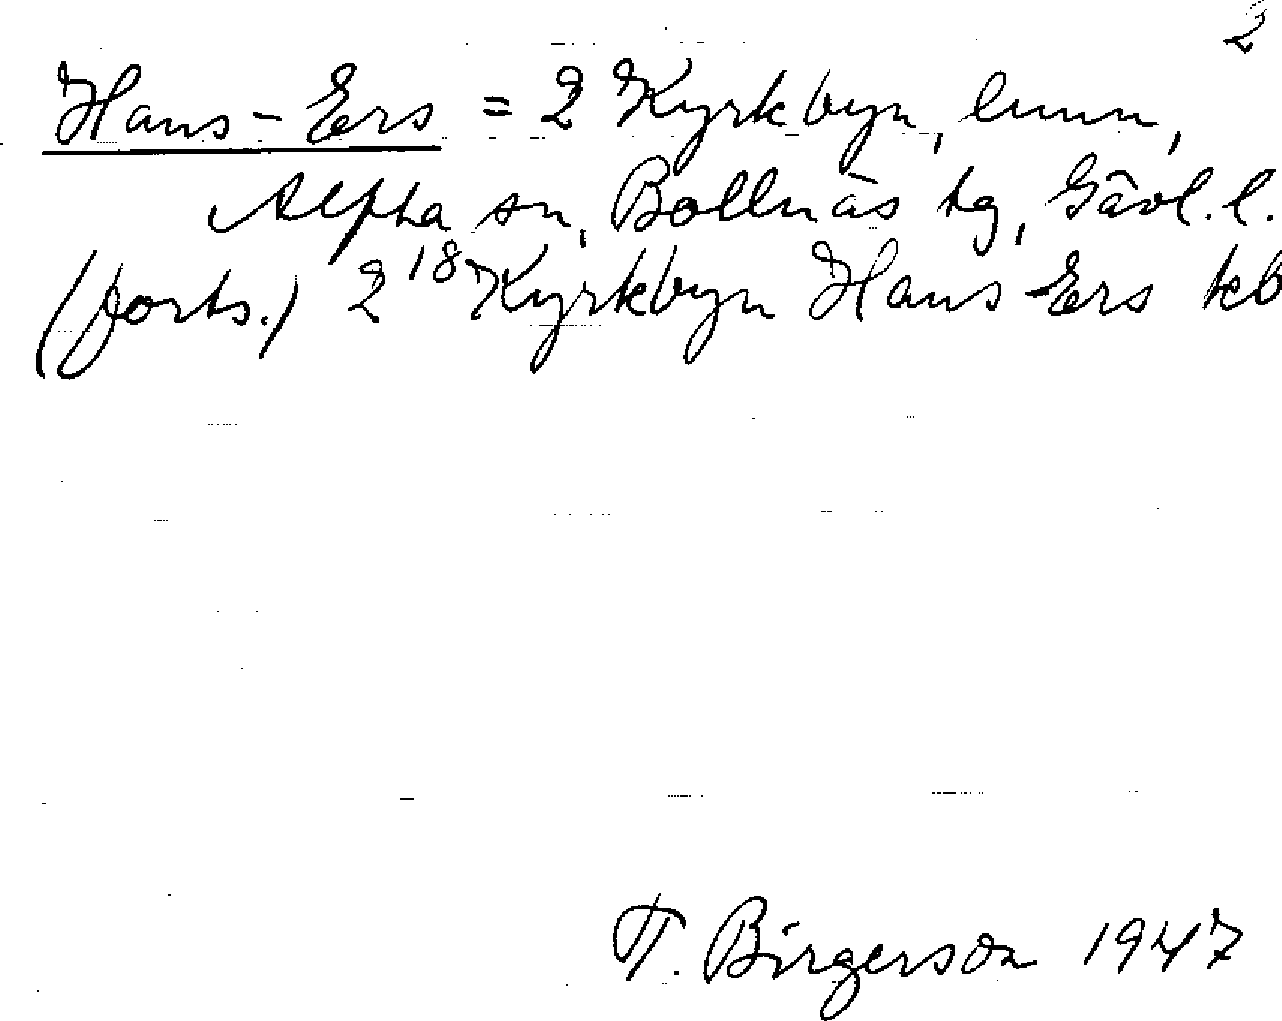 2
Hans-Ers = 2 Kyrkbyn,
Alfta sn, Bollnäs tg, Gävl.l.
(forts.) 2 18 Kyrkbyn Hans-Ers kb
T. Birgerson 1947